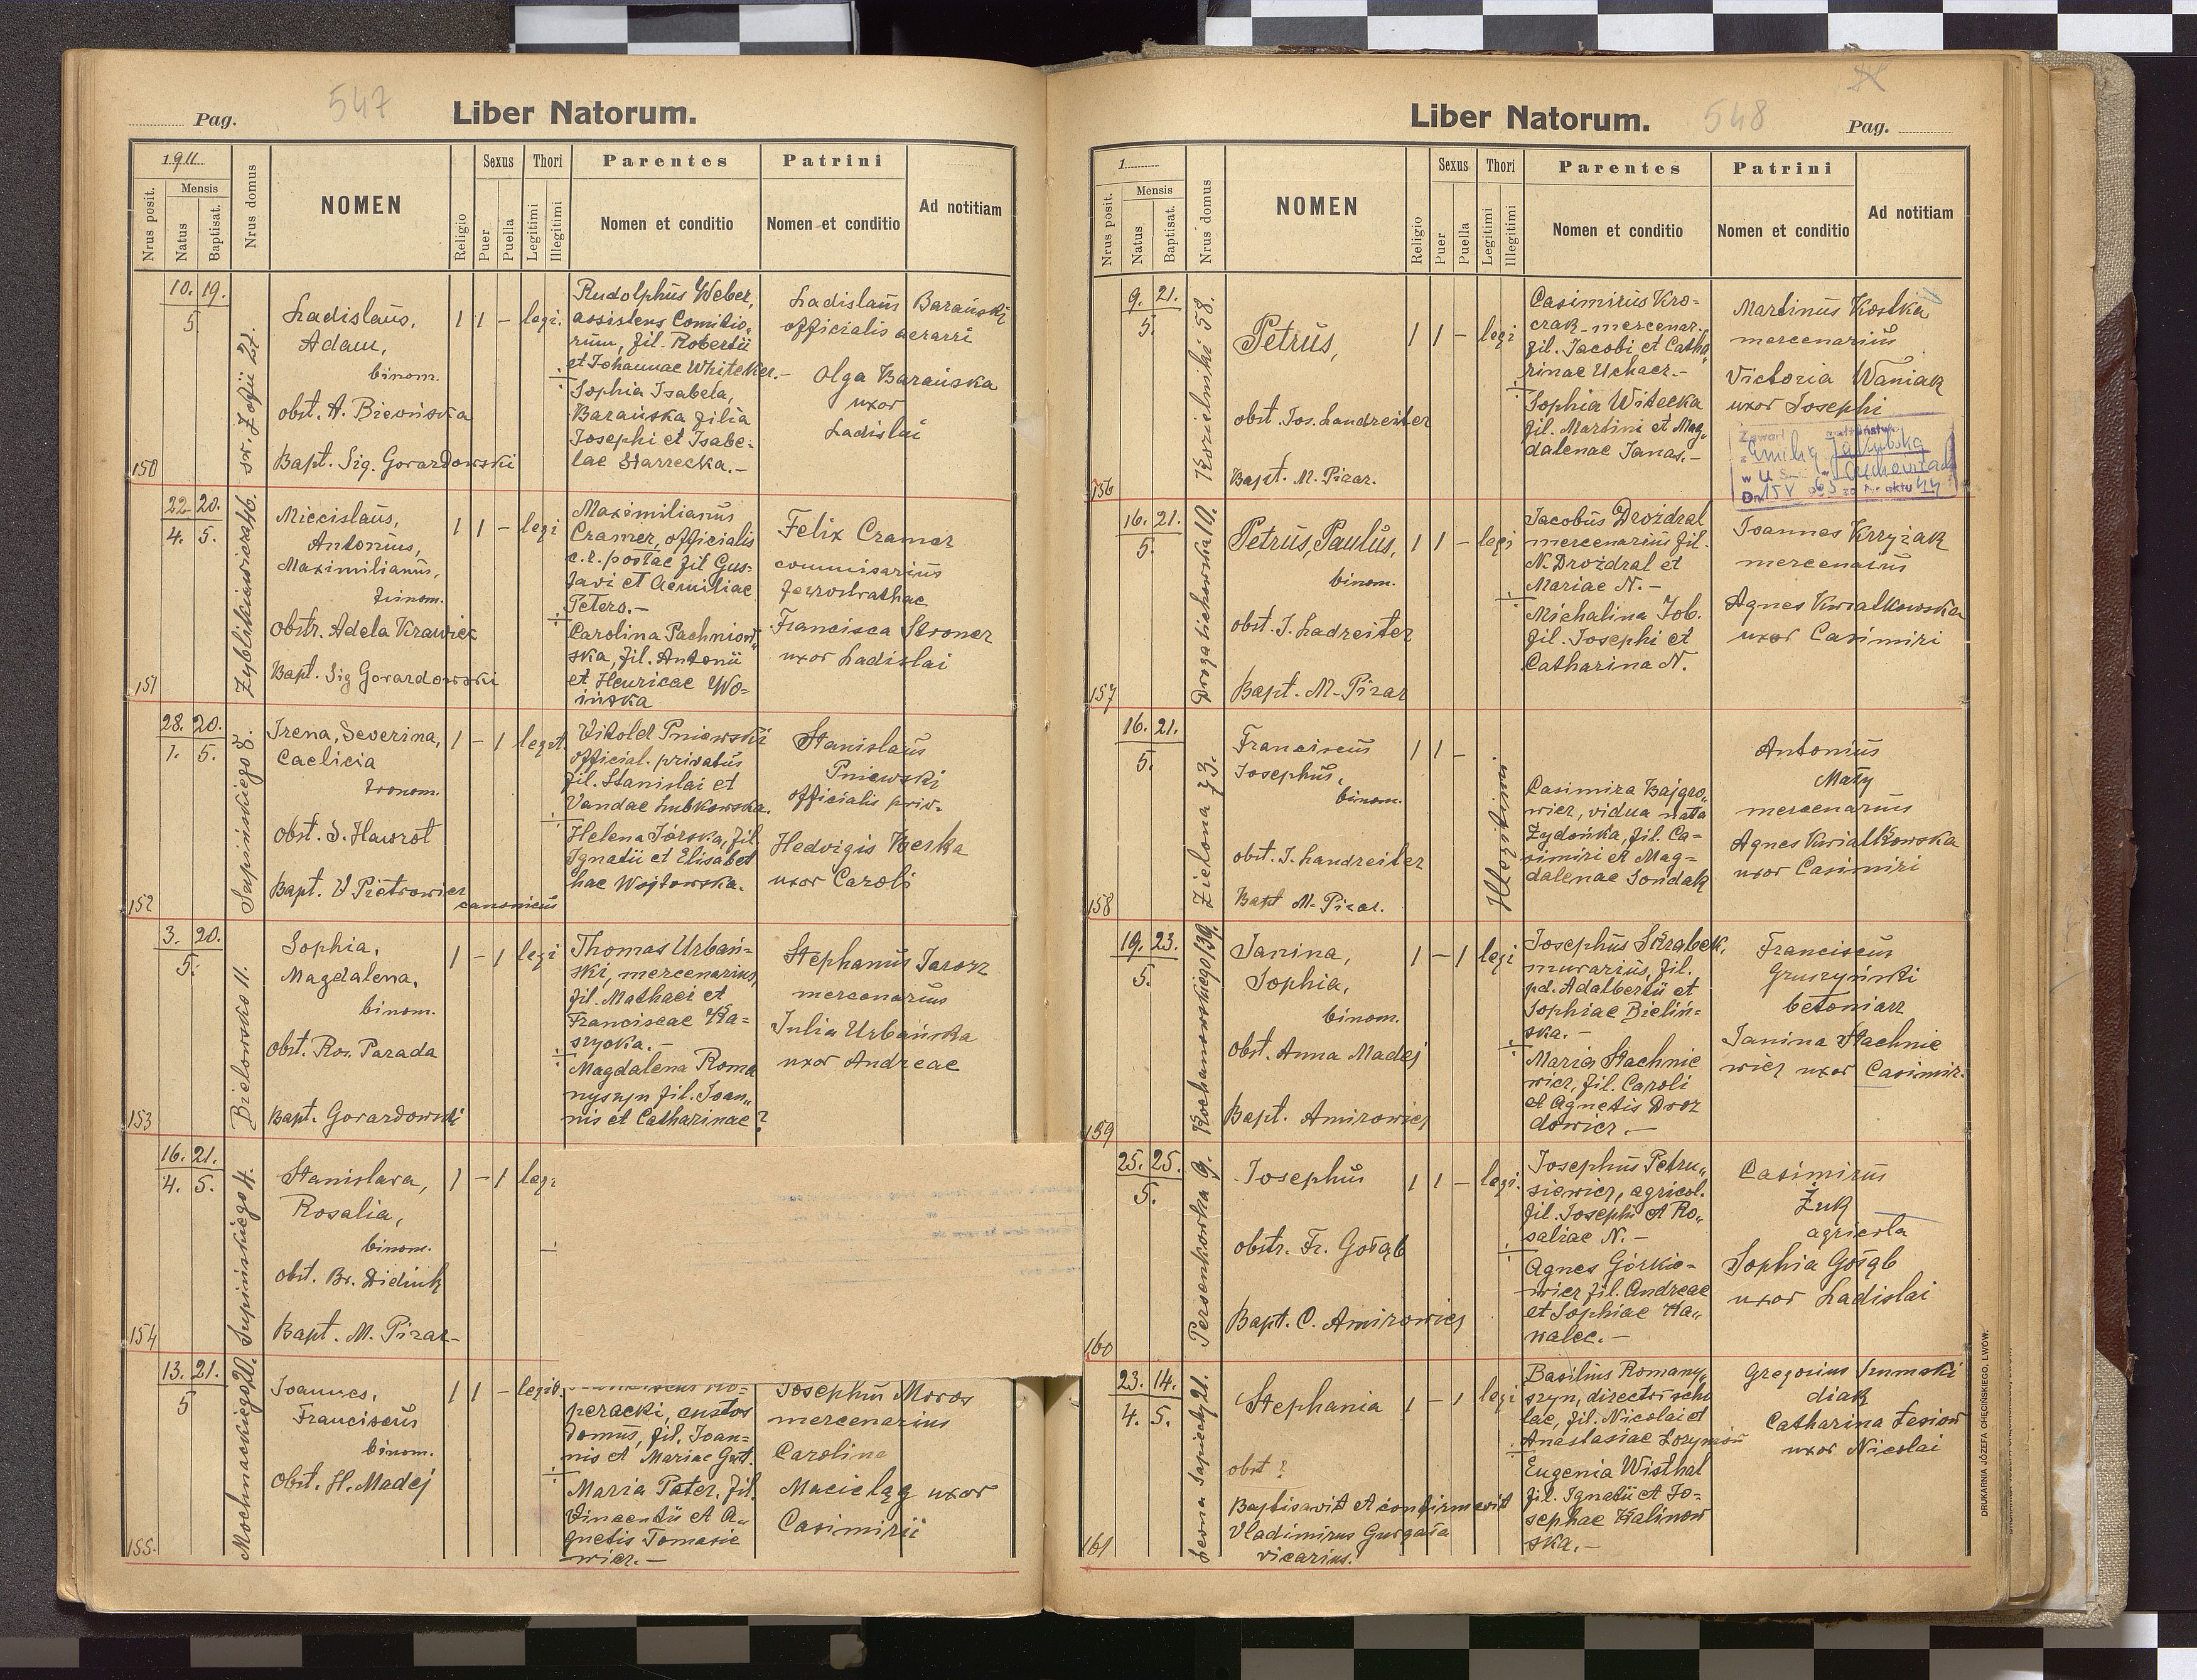 547
Pag.
Liber Natorum.
1911
Nrus posit.
Mensis
Natus
Baptisat.
Nrus domus
NOMEN
Religio
Sexus
Puer
Puella
Thori
Legitimi
Illegitimi
Parentes
Nomen et conditio
Patrini
Nomen et conditio
Ad notitiam
150
10. 19.
5
św. Zofii 27.
Ladislaus,
Adam,
binom.
obst. A. Bieońska
Bapt. Sig. Gorardowski
1 1 – legi.
Rudolphus Weber,
assistens Comitio-
rum, fil. Robertii
et Johannae Whiteker.–
Sophia Isabela,
Barańska filia
Josephi et Isabe-
lae Starrecka.–
Ladislaus Barański
officialis aerarri
Olga Barańska
uxor
Ladislai
151
22. 20.
4. 5.
Zyblikiewicza 46.
Miecislaus,
Antonius,
Maximilianus,
trinom.
Obstr. Adela Krawiek
Bapt. Sig Gorardowski
1 1 – legi
Maximilianus
Cramer, officialis
c.r. postae fil Gus-
tavi et Aemiliae
Peters.–
Carolina Pachniow-
ska, fil. Antonii
et Henricae Wo-
ińska
Felix Cramer
commisarius
Francisca Stroner
uxor Ladislai
152
28. 20.
1. 5.
Supińskiego 8.
Irena, Severina,
Caelicia
tronom.
Obst. S. Hawrot
Bapt. V Pietrowicz
canonicus
1 – 1 legit.
Vitold Pniewski
official. privatus
fil. Stanislai et
Vandae Lubkowska.
Helena Górska, fil.
Ignatii et Elisabet
hae Wojtowska.
Stanislaus
Pniewski
officialis priv.
Hedvigis Kuerka
uxor Caroli
153
3. 20.
5.
Bielowsko 11.
Sophia,
Magdalena,
binom.
Obst. Ros. Parada
Bapt. Gorardowski
1 – 1 legi
Thomas Urbań-
ski, mercenarius,
fil. Mathaei et
Franciscae Ka-
szyoka.–
Magdalena Roma
nyszyn fil. Joan-
nis et Catharinae ?
Stephanus Jarosz
mercenarius
Julia Urbańska
uxor Andreae
154
16. 21.
4. 5.
Supińskiego 4.
Stanislava,
Rosalia,
binom.
Obst. Br. Didiuk
Bapt. M. Pizar–
1 – 1 legi
155.
13. 21.
5
Mochnackiego 20.
Joannes,
Franciscus
binom.
Obst. H. Madej
1 1 – legit.
peracki, custos
domus, fil. Joan-
nis et Mariae Gut.
Maria Pater, fil.
Vincentii et A-
gnetis Tomasie
wicz.–
Josephus Moros
mercenarius
Carolina
Macieląg uxor
Casimirii
Liber Natorum.
548
Pag.
1
Nrus posit.
Mensis
Natus
Baptisat.
Nrus domus
NOMEN
Religio
Sexus
Puer
Puella
Thori
Legitimi
Illegitimi
Parentes
Nomen et conditio
Patrini
Nomen et conditio
Ad notitiam
156
9. 21.
5.
Kozielniki 58.
Petrus,
obst. Jos. Landreiter
Bapt. M. Pizar.
1 1 – legi
Casimirus Kro-
czak mercenar.
fil. Jacobi et Catha
rinae Uchacz.–
Sophia Witecka
fil. Martini et Mag-
dalenae Janas.–
Martinus Kostka
mercenarius
Victoria Waniak
uxor Josephi
157
16. 21.
5.
Droga tichowska 10.
Petrus, Paulus,
binom.
obst. J. Ladreiter
Bapt. M. Pizar
1 1 – legi
Jacobus Droždral
mercenarius fil.
N. Droždral et
Mariae N.–
Michalina Job.
fil. Josephi et
Catharina N.
Joannes Krzyżak
mercenarius
Agnes Kwiatkowska
uxor Casimiri
158
16. 21.
5.
Zielona 73.
Franciscus
Josephus,
binom.
obst. J. Landreiter
Bapt M. Pizar.
1 1 –
Illegitimi
Casimira Bajgro-
wicz, vidua nata
Żydońka, fil. Ca-
simiri et Mag-
dalenae Sondak
Antonius
Mały
mercenarius
Agnes Kwiatkowska
uxor Casimiri
159
19. 23.
5.
Kochanowskiego 139.
Janina,
Sophia,
binom.
Obst. Anna Madej
Bapt. Amirowicz
1 – 1 legi
Josephus Skrabek,
murarius, fil.
pd. Adalbertii et
Sophiae Bielin-
ska.–
Maria Stachnie
wicz, fil. Caroli
et Agnetis Droz
dowicz.–
Franciscus
Gruszyński
betoniarz
Janina Stachnie
wicz uxor Casimir.
160
25. 25.
5.
Persenkowka 9.
Josephus
obstr. Fr. Gołąb
Bapt. C. Amirowicz
1 1 – legi.
Josephus Petru-
siewicz, agricol.
fil. Josephi et Ro-
saliae N.–
Agnes Górkie-
wicz fil. Andreae
et Sophiae Ha-
nalec.–
Casimirus
Żuk
agricola
Sophia Gołąb
uxor Ladislai
161
23. 14.
4. 5.
Leona Sapiehy 21.
Stephania
obst ?
Baptisavit et confirmavit
Vladimirus Gurgała
vicarius.
1 – 1 legi
Basilius Romany-
szyn, director scho
lae, fil. Nicolai et
Anastasiae Lozymów
Eugenia Wisthal
fil. Ignatii et Jo-
sephae Kalinow
ska.–
Gregorius Szumski
diak
Catharina Lesiow
uxor Nicolai
DRUKARNIA JÓZEFA CHĘCIŃSKIEGO, LWÓW.